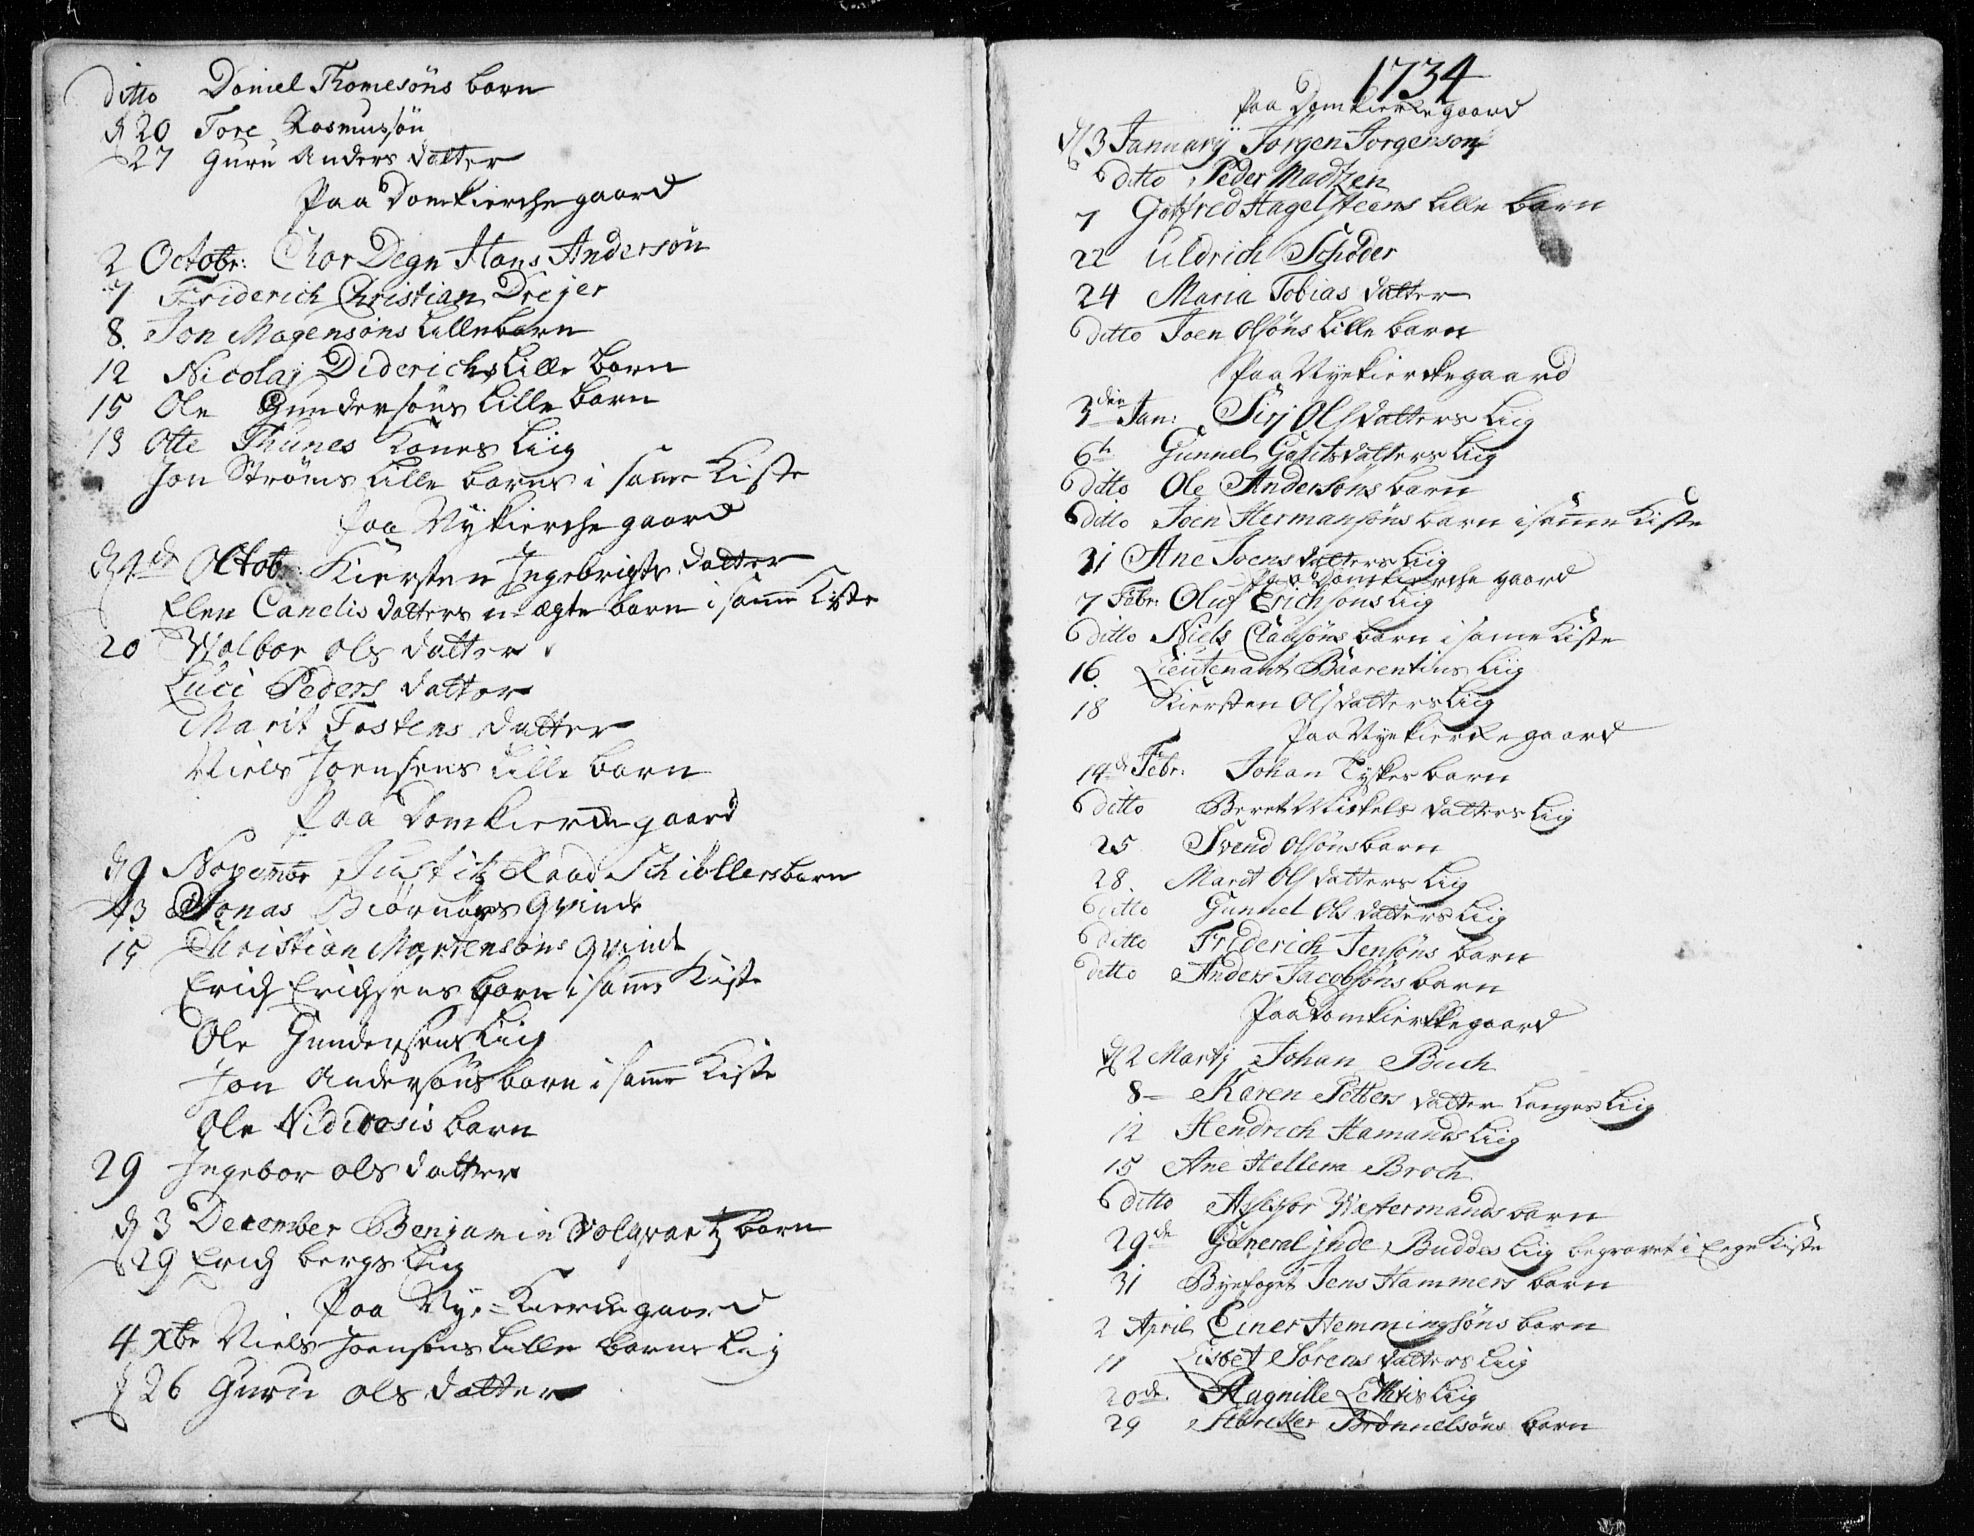 ditto Daniel Thomesøns barn
d 20 Tore Rasmussøn
27 Guru Anders datter
Paa Domkierche gaard
2 Octobr: Chor Degn Hans Andersøn
7 Friderich Christian Drejer
8. Jon Mogensøns Lille barn
12 Nicolaj Diderichs Lille barn
15 Ole Gundersøns Lille barn
13 Otte Thunes Kones Liig
Jon Strøms Lille barn i samme Kiste
Paa Nykierche gaard
Octobr: Kiersten Ingebrigts datter
Elen Canelis datters u-ægte barn i samme Kiste
20 Walbor Ols datter
Luci Peders datter
Marit Tostens datter
Niels Joensens Lille barn
Paa Domkierche gaard
d 9 Novembr Justitz Raad Schiøllers barn
13 Jonas Biørnsøns Qvinde
15 Christian Mortensøns Qvinde
Erich Erichsens barn i samme Kiste
Ole Gundersens Liig
Jon Andersøns barn i samme Kiste
Ole Nidrosis barn
29 Ingebor Ols datter
d 3 December Benjamin Volqvartz barn
29 Erich bergs Liig
Paa Nye-Kierche gaard
4 Xbr Niels Joensens Lille barns Liig
26 Guru Ols datter
1734
Paa Domkierke gaard
d 3 Januarÿ Jørgen Jørgensøn
ditto Peder Madtzen
7 Gotfred Hagelsteens Lille barn
22 Uldrich Schøder
24 Maria Tobias datter
ditto Joen Olsøns Lille barn
Paa Nyekierckegaard
3den Jan: Sirj Olsdatters Liig
6t Gunnel Gautsdatters Liig
ditto Ole Andersøns barn
ditto Joen Hermansøns barn i samme Kiste
31 Ane Joens datters Liig
Paa Domkierche gaard
7 Febr: Oluf Erichsøns Liig
ditto Niels Clausøns barn i samme Kiste
16 Lieutenant Baarentins Liig
18 Kiersten Olsdatters Liig
Paa Nyekierke gaard
14d Febr: Johan Tyskes barn
ditto Beret Mikels datters Liig
25 Svend Olsøns barn
28. Marit Olsdatters Liig
ditto Gunnel Ols datters Liig
ditto Friderich Jensøns barn
ditto Anders Jacobsøns barn
Paa Domkierkegaard
d 2 Martj Johan Buch
8 - Karen Petters datter Langes Liig
12 Hendrich Hamands Liig
15 Ane Hellem Broch
ditto Assessor Westermands barn
29de General inde Buddes Liig begravet i Eege Kiste
31 Byefoget Jens Hammers barn
2 April Einer Hemmingsøns barn
11 Lisbet Sørens datters Liig
20de Ragnille Liig
29 Brønnelsøns barn